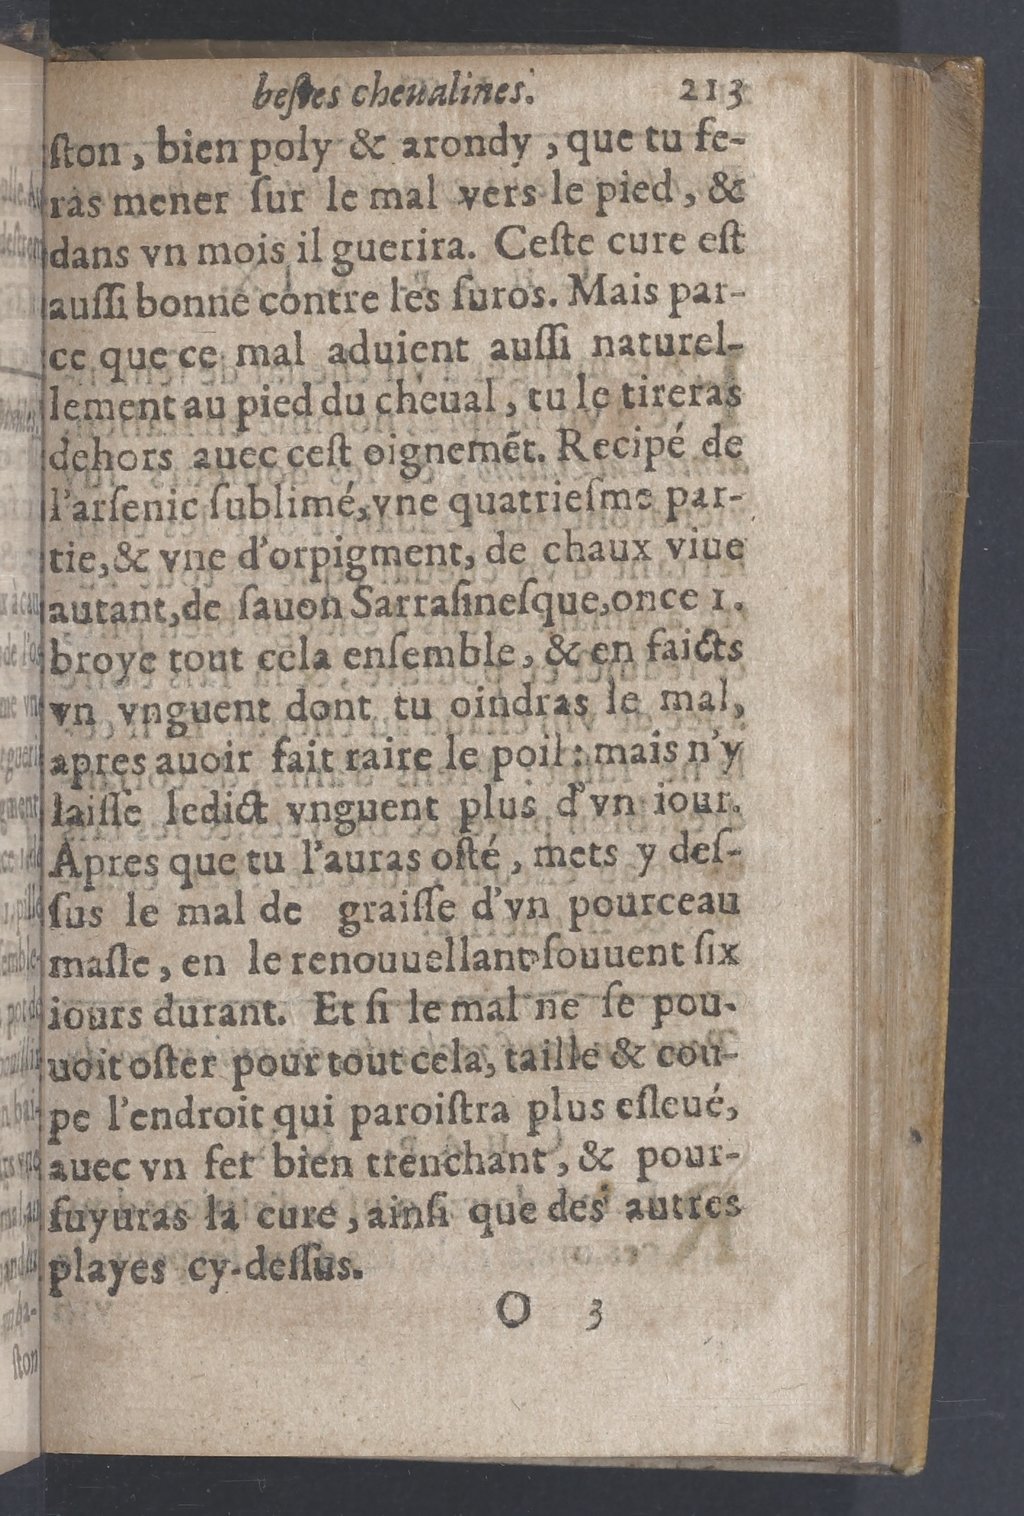 beſtes cheualines. 213
ſton, bien poly & arondy, que tu fe-
ras mener ſur le mal vers le pied, &
dans vn mois il guerira. Ceſte cure eſt
auſſi bonne contre les ſuros. Mais par-
ce que ce mal aduient auſſi naturel-
lement au pied du cheual, tu le tireras
dehors auec ceſt oignemẽt. Recipé de
l'arſenic ſublimé, vne quatrieſme par-
tie, & vne d'orpigment, de chaux viue
autant, de ſauon Sarraſineſque, once 1.
broye tout cela enſemble, & en faicts
vn vnguent dont tu oindras le mal,
apres auoir fait raire le poil: mais n'y
laiſſe ledict vnguent plus d'vn iour.
Apres que tu l'auras oſté, mets y deſ-
ſus le mal de graiſſe d'vn pourceau
maſle, en le renouuellant ſouuent ſix
iours durant. Et ſi le mal ne ſe pou-
uoit oſter pour tout cela, taille & cou-
pe l'endroit qui paroiſtra plus eſleué,
auec vn fer bien trenchant, & pour-
ſuyuras la cure, ainſi que des autres
playes cy-deſſus.
O 3
ſton